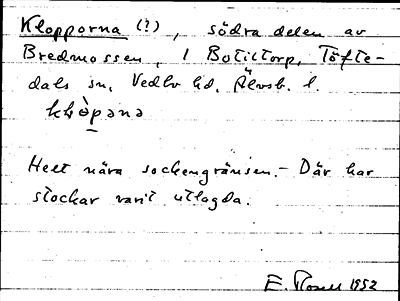 Klopporna (?), södra delen av
Bredmossen, 1 Botiltorp, Töfte-
dals sn, Vedbo hd, Älvsb. l.
Helt nära sockengränsen. – Där har
stockar varit utlagda.
E. 1952